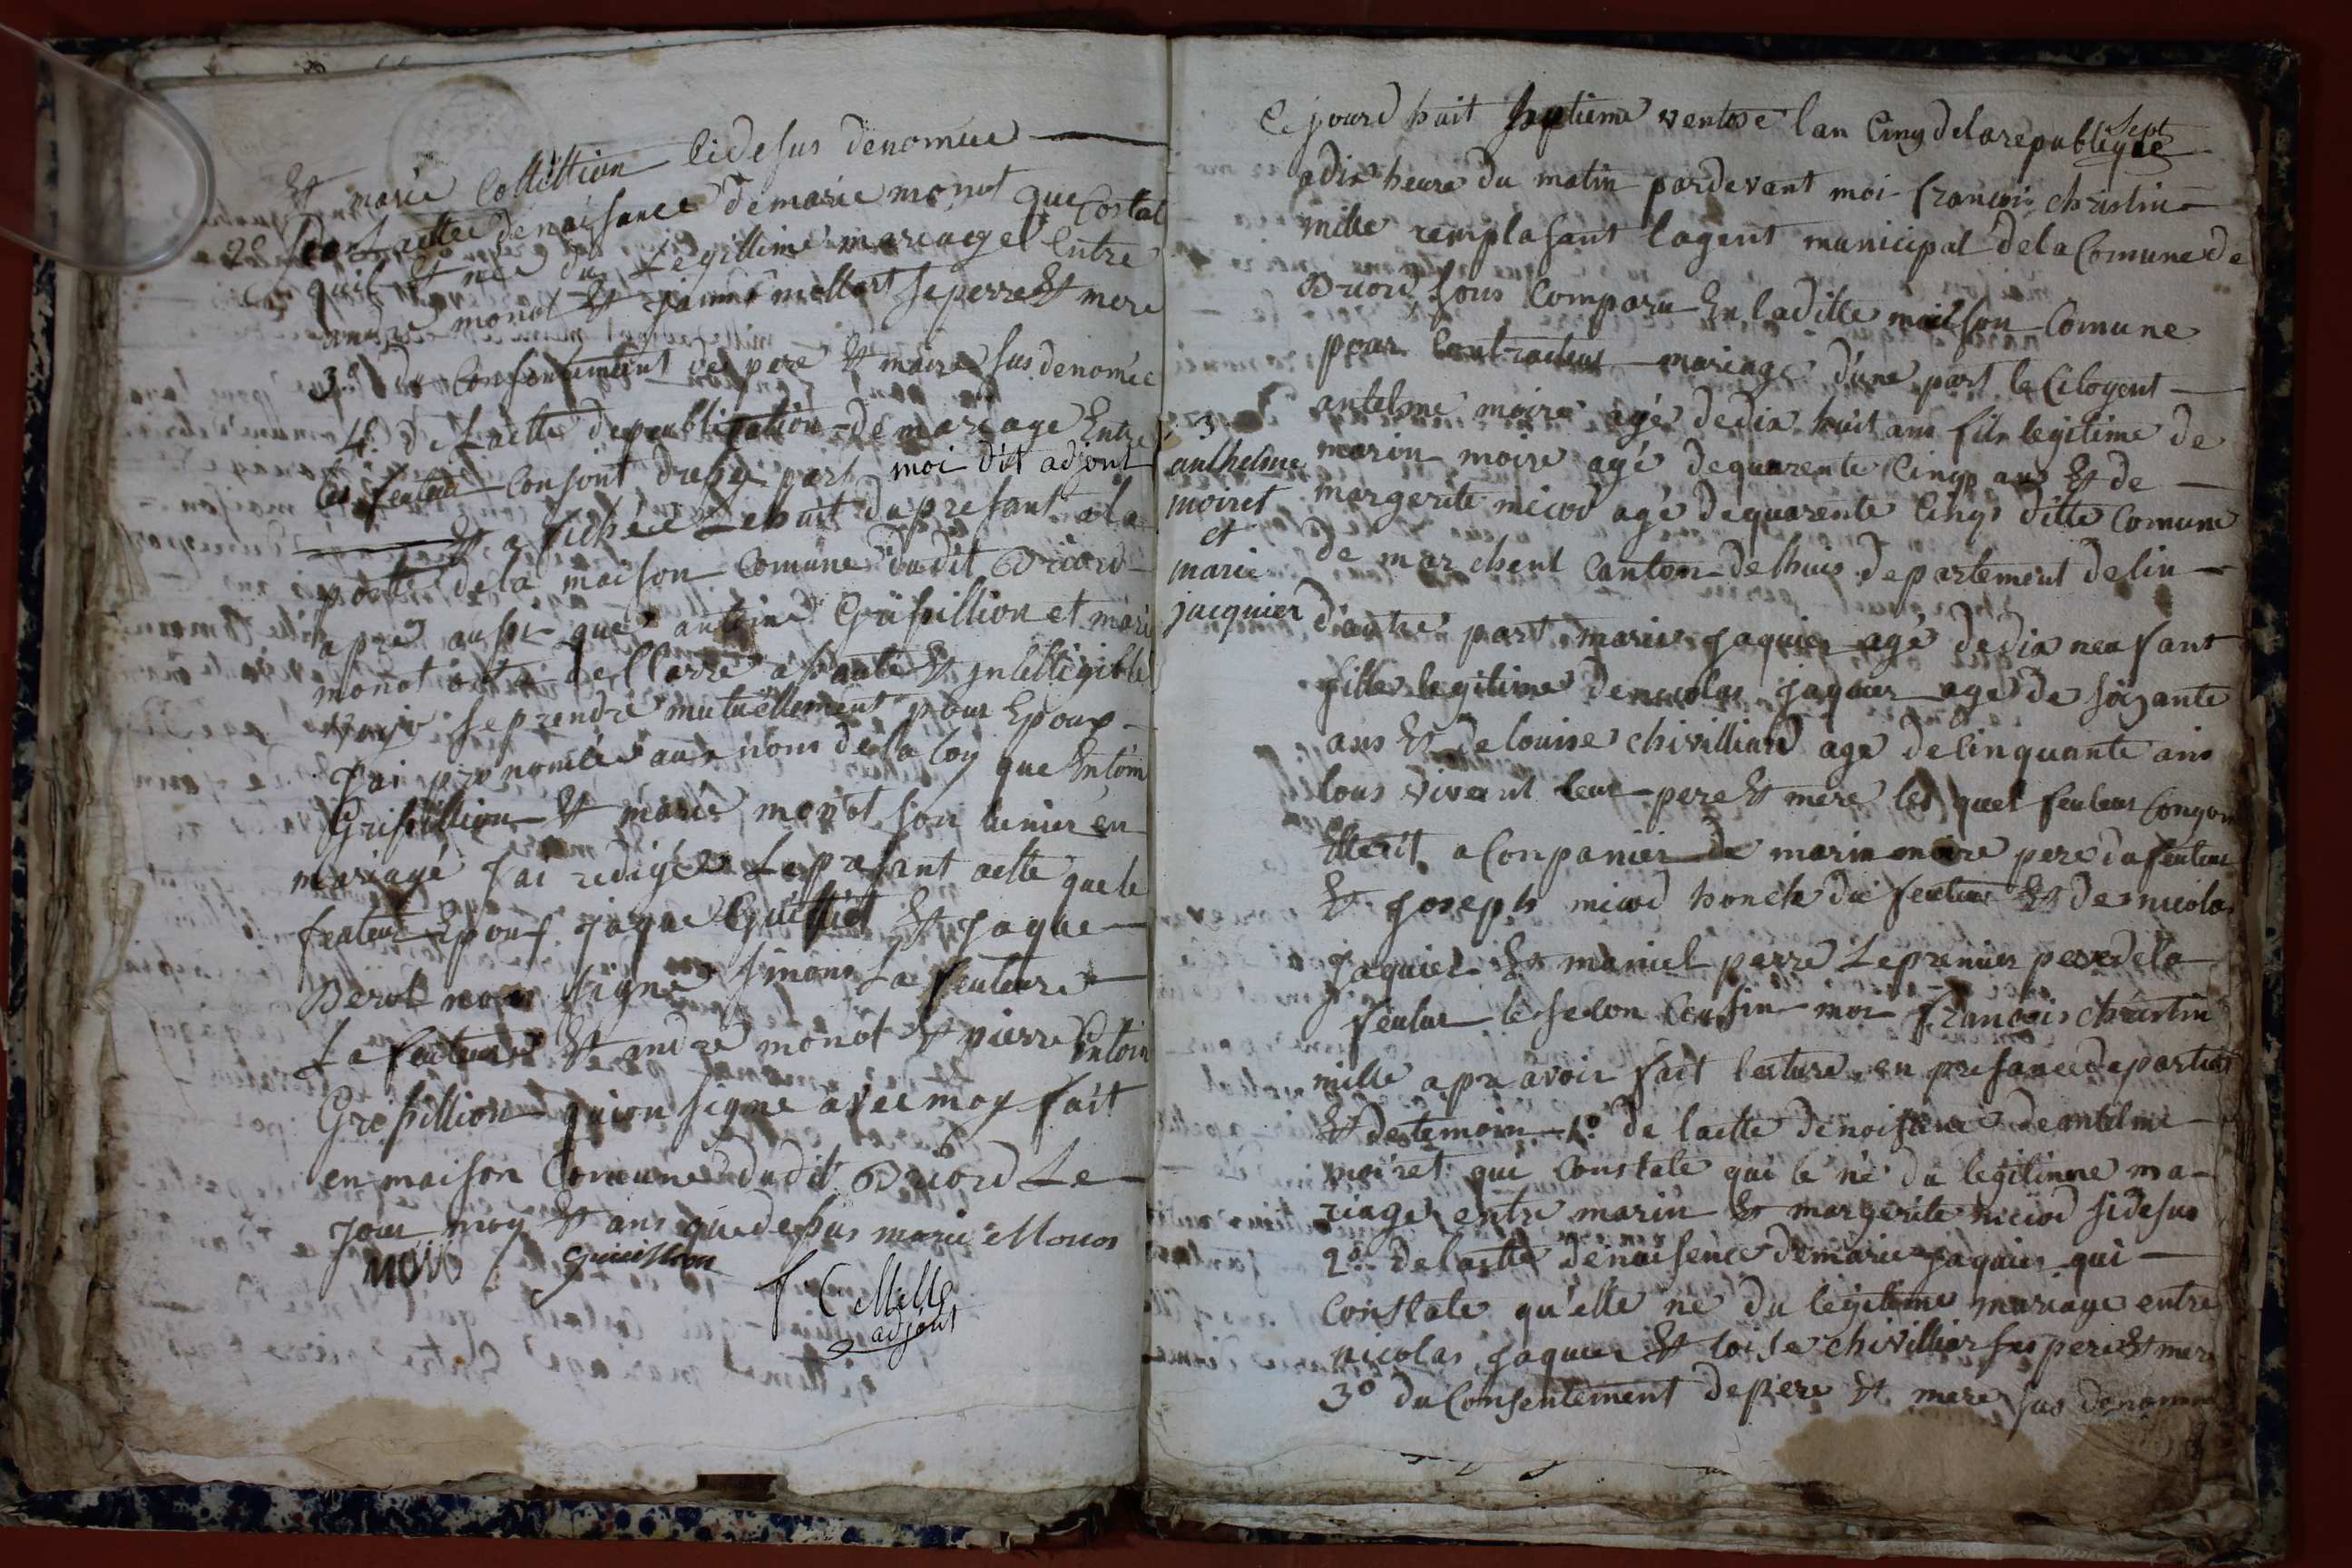 Et marie Collillion Cidesus denomée
2o de lactte denaissance de marie monot que Costat
quil Et née du Legillime mariage Entre
andre monot Et jeanne mollart se perre Et mere
3.o du Consentement des pere Et maire sus denomée
4.o de Lactte depublication de mariage Entre
les feuteur Conjoint drepé part moi dit adjont
Et afichée le huit du presant a la
porte de la maison Comune dudit Briord
apré ausi que antoine Grisillion et marie
monot ont declarré a haute Et jntelligible
voix se prendre mutuellement pour Epoux
Jai prononcé au nom de la loy que Entoin
Grisillion Et marie monot son unier en
mariage Jai redigée Le presant actte que le
feuteur Epoux jaque Et jaque
Perol non signé sinon La feuteure
La feuteure Et andre monot Et pierre Entoin
Gresillion quion signe avec moy fait
en maison Comune dudit Briord Le
jour moy Et ans que desus marie Monos
mono
f C Mille
adjont
Ce jourd huit septieme ventose lan Cinq dela republique
sept
a dix heura du matin pardevant moi francois christin
mille remplasant lagent municipal dela Comune de
Briord sous Comparu En laditte maison Comune
pour Contracteur mariage d'une part le Citoyent
antelme moire agé dedix huit ans fils legitime de
marin moire agé dequarente Cinq ans Et de
margerite micod agé dequarente Cinqs ditte Comune
de marchent Canton delhuis departement delin
3
anthelme
moiret
et
marie
jacquier
d'autre part marie jaquier agé dedix neuf ans
fille legitime denicolas jaquier age de soizante
ans Et de louise chivilliard age de Cinquante ans
tous vivent leur pere Et mere les quel feuteur Conjoin
Etterit aConpanier de marin moire pere du feuteur
Et joseph micod honcle du feuteur Et de nicolas
jaquier Et maniel perre Le premier pere de la
feuteur le secon Cousin moi francois christin
mille apre avoir fait lecture en presance de partie
Et destemoin 1.o de lactte denoisance de antelme
moiret qui Constate qui le né du legitime ma-
riage entre marin Et margerite micod sidesus
2.o de lactte denaisence de marie jaquier qui
Constate qu'elle né du legitime mariage entre
nicolas jaquier Et loise chivilliar ses pere Et mere
3o du Consentement depere Et mere sus denomé